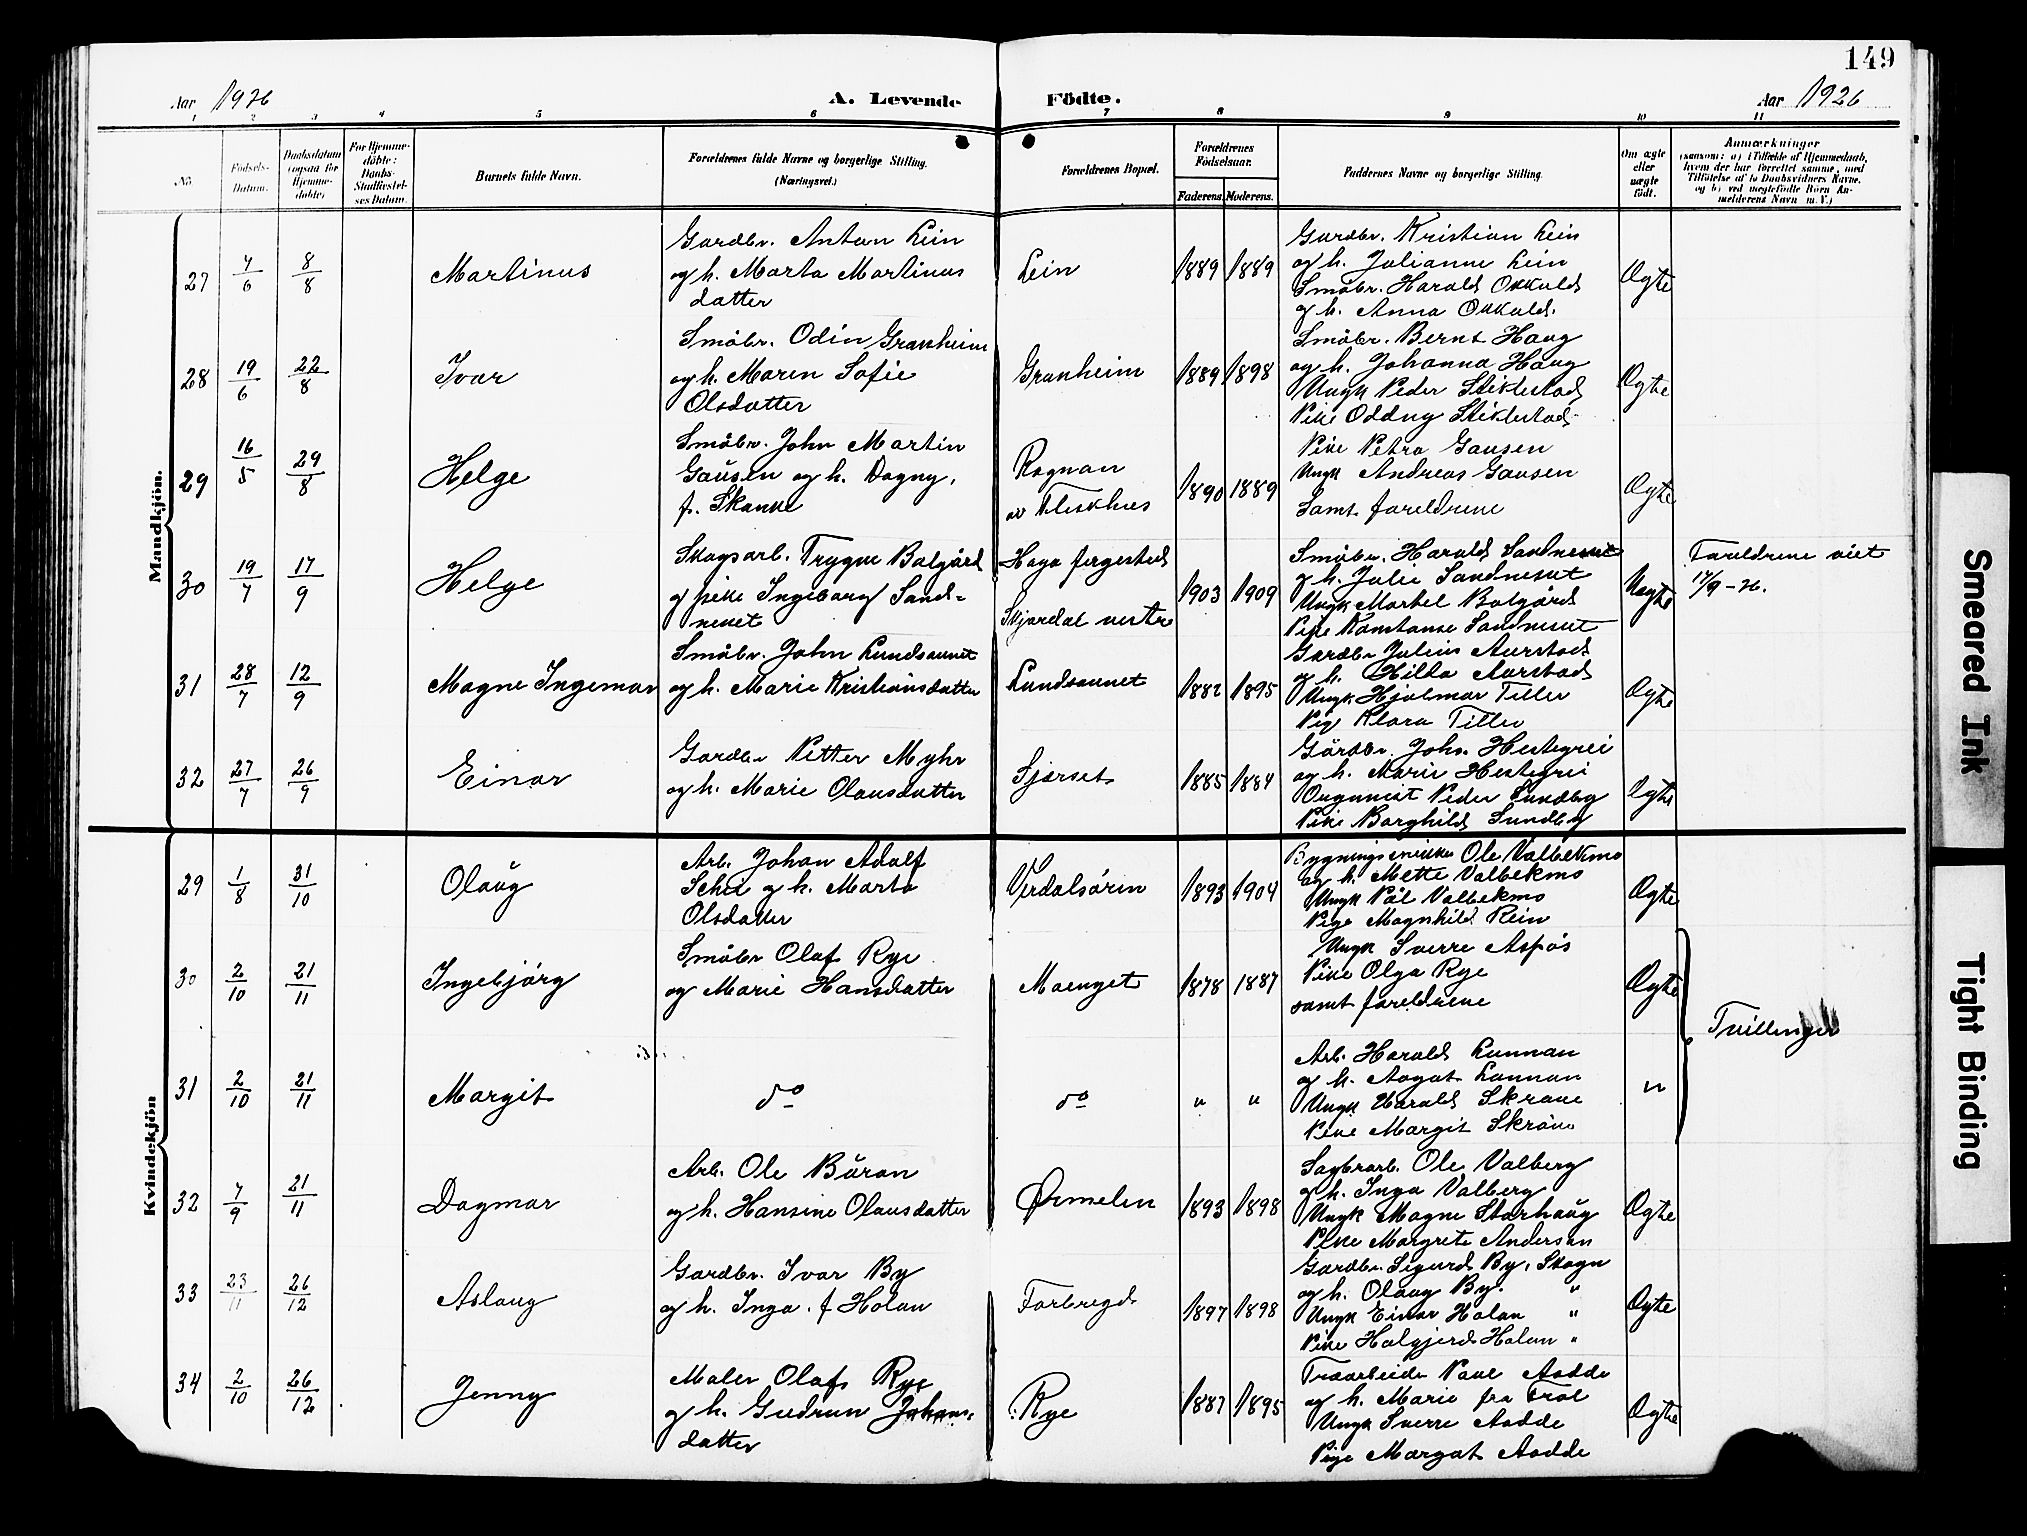 149
Aar 1926
A. Levende Födte.
Aar 1926
1 2 3 4 5 6 7 8 9 10 11
No.
Födsels-
Datum.
Daabsdatum
(ogsaa for
Hjemme-
döbte)
For Hjemme-
döbte:
Daabs-
Stadfæstel-
ses Datum.
Barnets fulde Navn.
Forældrenes fulde Navne og borgerlige Stilling.
(Næringsvei.)
Forældrenes Bopæl.
Forældrenes
Födselsaar.
Faderens. Moderens.
Faddernes Navne og borgerlige Stilling.
Om ægte
eller
uægte
födt.
Anmærkninger
(saasom: a) i Tilfælde af Hjemmedaab,
hvem der har forrettet samme, med
Tilföielse af to Daabsvidners Navne,
og b) ved uegtefödte Börn An-
melderens Navn m. V.)
Mandkjön.
27
7/6
8/8
Martinus
Gardbr. Anton Lein
og h. Marta Martinus
datter
Lein
1889 1889
Gardbr. Kristian Lein
og h. Julianne Lein
Småbr. Harald Okkuld
og h. Anna Okkuld.
Ægte
28
19/6
22/8
Ivar
Småbr. Odin Granheim
og h. Maren Sofie
Olsdatter
Granheim
1889 1898
Småbr. Bernt Haug
og h. Johanna Haug
Ungk Peder Stiklestad
Pike Oddny Stiklestad
Ægte
29
16/5
29/8
Helge
Småbr. John Martin
Gausen og h. Dagny,
f. Skanke
Rognan
av Fleskhus
1890 1889
Pike Petra Gausen
Ungk Andreas Gausen
Samt foreldrene
Ægte
30
19/7
17/9
Helge
Skogsarb. Trygve Balgård
og pike Ingeborg Sand-
neset
Haga fergested
Skjørdal vestre
1903 1909
Småbr. Harald Sandneset
og h. Julie Sandneset
Ungk Martel Balgård
Pike Konstanse Sandneset
Uegte
Foreldrene viet
17/9-26.
31
28/7
12/9
Magne Ingemar
Småbr. John Lundsaunet
og h. Marie Kristiansdatter
Lundsaunet
1882 1895
Gardbr Julius Aurstad
og h. Hilda Aurstad
Ungk Hjalmar Tiller
Pige Klara Tiller
Ægte
32
27/7
26/9
Einar
Gardbr Petter Myhr
og h. Marie Olausdatter
Fjærset
1885 1884
Gårdbr. Johs. Hestegrei
og h. Marie Hestegrei
Organist Peder Sundby
Pike Borghild Sundby
Ægte
Kvindekjön
29
1/8
31/10
Olaug
Arb. Johan Adolf
og h. Marta
Olsdatter
Verdalsøren
1893 1904
Ole Valbekmo
og h. Mette Valbekmo
Ungk Pål Valbekmo
Pige Magnhild Rein
Ægte
30
2/10
21/11
Ingebjørg
Småbr Olaf Rye
og Marie Hansdatter
Moenget
1878 1887
Ungk Sverre Aspås
Pike Olga Rye
samt foreldrene
Ægte
Tvillinger
31
2/10
21/11
Margit
do
do
" "
Arb. Harald Lunnan
og h. Aagot Lunnan
Ungk Harald Skrove
Pike Margit Skrove
"
32
7/9
21/11
Dagmar
Arb. Ole Båran
og h. Hansine Olausdatter
Ørmelen
1893 1898
Sagbrarb. Ole Valberg
og h. Inga Valberg
Ungk Magne Storhaug
Pike Margrete Anderson
Ægte
33
23/11
26/12
Aslaug
Gardbr. Ivar By
og h. Inga f Holan
Forbregd
1897 1898
Gardbr. Sigurd By, Skogn
og h. Olaug By. "
Ungk Einar Holan "
Pike Halgjerd Holan "
Ægte
34
2/10
26/12
Jenny
Maler Olaf Rye
og h. Gudrun Johans-
datter
Rye
1887 1895
Paul Aadde
og h. Marie fra
Ungk Sverre Aadde
Pige Margot Aadde
Ægte
Smeared Ink
Tight Binding